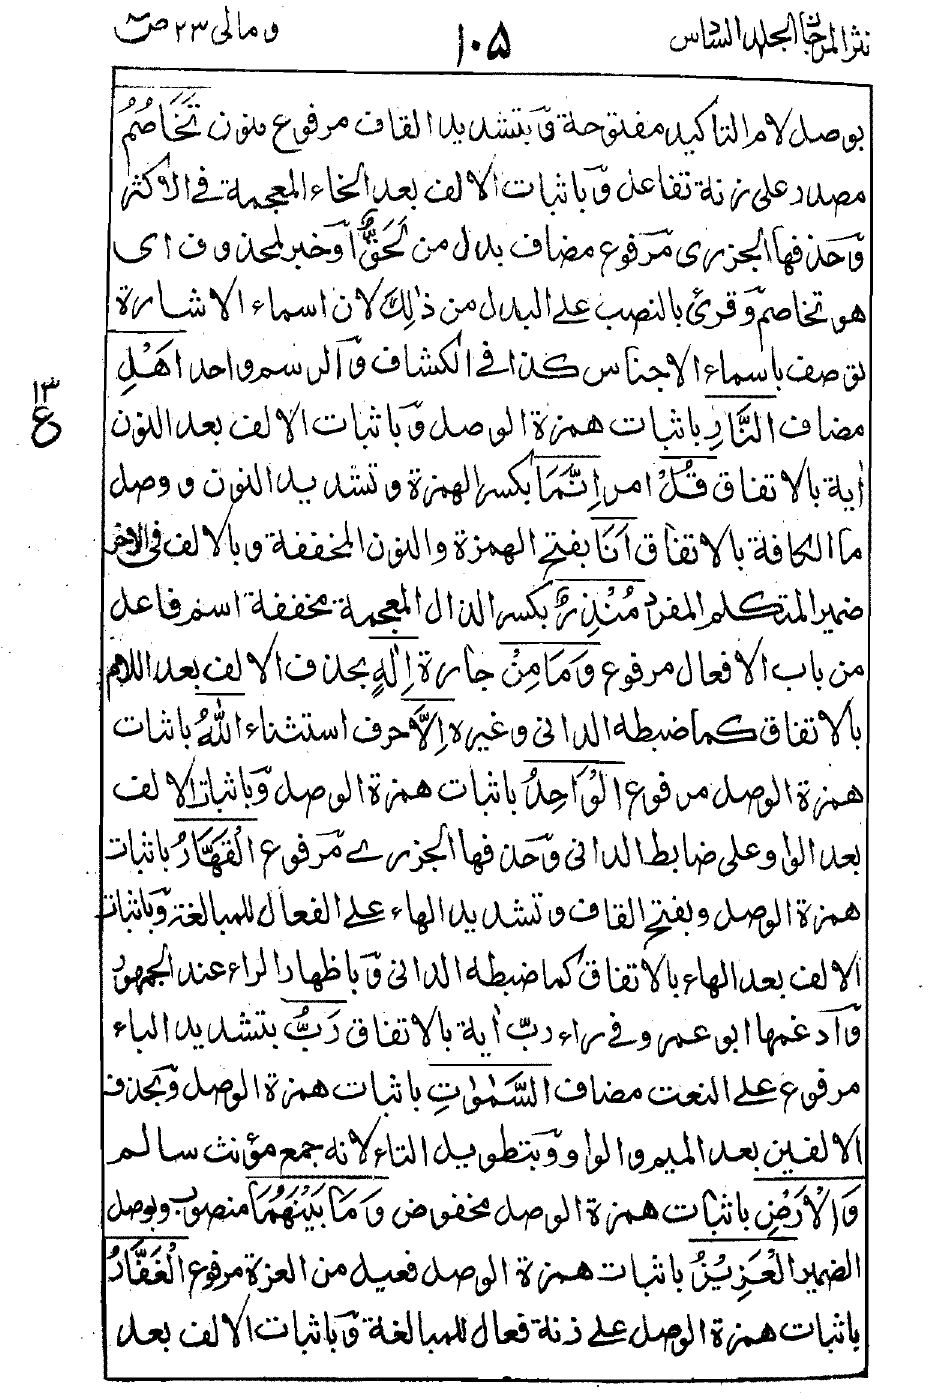 نثر المرجان الجلد السادس
١٠٥
و مالی ٢٣ ص
بوصل لام التاكيد مفتوحة وَبتشديد القاف مرفوع منون تَخَاصُمُ
مصدر على زنة تفاعل وَباثبات الالف بعد الخاء المعجمة في الاكثر
وَحذفها الجزرى مَرفوع مضاف بدل من لَحَقٌّ اَوخبر لمحذوف اى
هو تخاصم وَقرئ بالنصب على البدل من ذٰلِكَ لان اسماء الاشارة
توصف باسماء الاجناس كذا في الكشاف وَالرسم واحد اَهْلِ
مضاف النَّارِ باثبات همزة الوصل وَباثبات الالف بعد النون
اٰية بالاتفاق قُلْ امر اِنَّمَا بكسر الهمزة وتشديد النون ووصل
ما الكافة بالاتفاق اَنَا بفتح الهمزة والنون المخففة وبالالف في الاخر
ضمير المتكلم المفرد مُنْذِرٌ بكسر الذال المعجمة مخففة اسم فاعل
من باب الافعال مرفوع وَمَا مِنْ جارة اِلٰهٍ بحذف الالف بعد اللام
بالاتفاق كما ضبطه الدانى وغيره اِلَّا حرف استثناء اللّٰهُ باثبات
همزة الوصل مرفوع الْوَاحِدُ باثبات همزة الوصل وَباثبات الالف
بعد الواو على ضابط الدانى وَحذفها الجزرے مَرفوع الْقَهَّارُ باثبات
همزة الوصل وبفتح القاف وتشديد الهاء على الفعال للمبالغة وَباثبات
الالف بعد الهاء بالاتفاق كما ضبطه الدانى وَباظهار الراء عند الجمهور
وَاَدغمها ابو عمرو في راء ربّ اٰية بالاتفاق رَبُّ بتشديد الباء
مرفوع على النعت مضاف السَّمٰوٰتِ باثبات همزة الوصل وَبحذف
الالفين بعد الميم والواو وَبتطويل التاء لانه جمع مؤنث سالم
وَالْاَرْضِ باثبات همزة الوصل مخفوض وَمَا بَيْنَهُمَا منصوب وبوصل
الضمير الْعَزِيْزُ باثبات همزة الوصل فعيل من العزة مرفوع الْغَفَّارُ
باثبات همزة الوصل على زنة فعال للمبالغة وَباثبات الالف بعد
١٣
ع